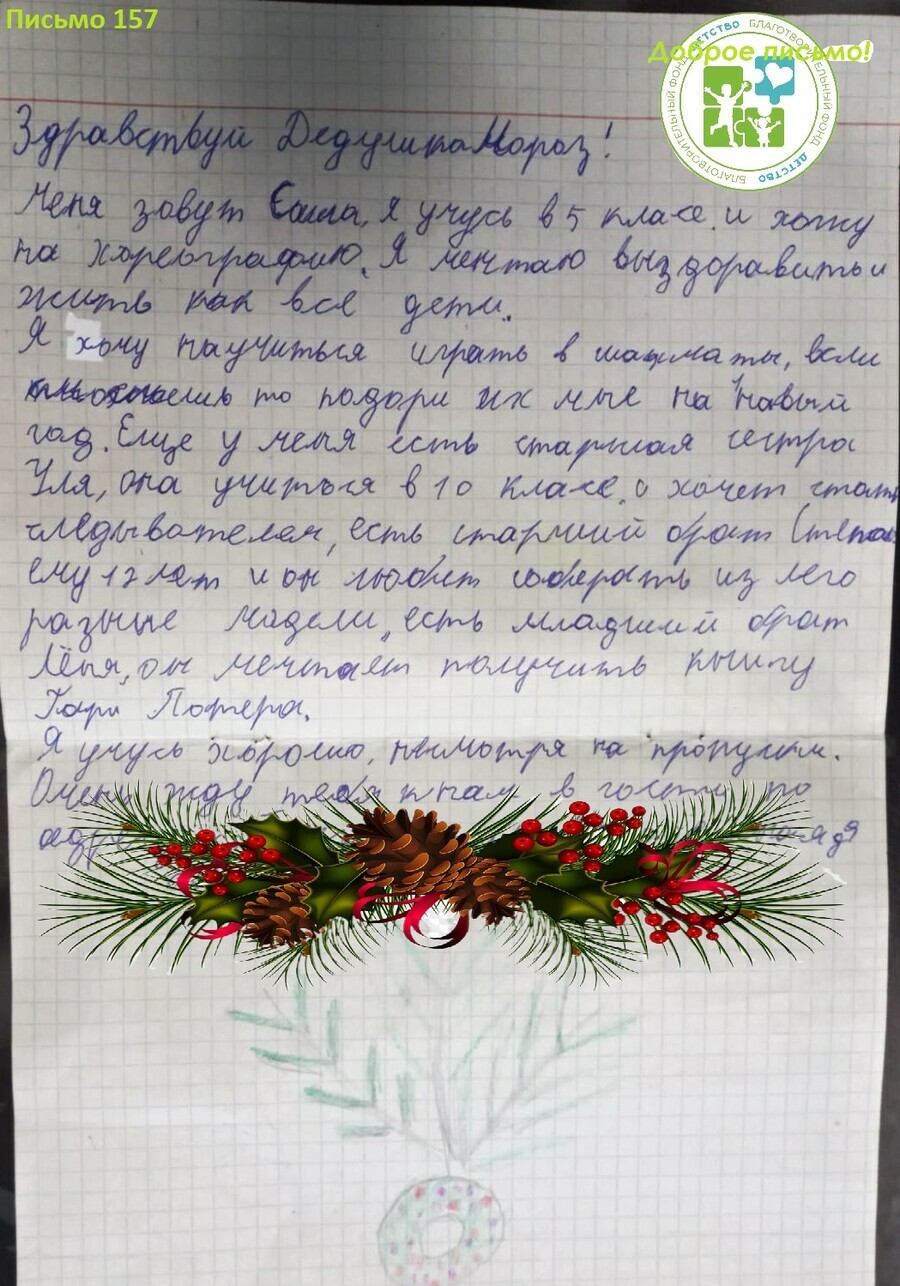 Письмо 157
Доброе письмо!
БЛАГОТВОРИТЕЛЬНЫЙ ФОНД ДЕТСТВО БЛАГОТВОРИТЕЛЬНЫЙ ФОНД ДЕТСТВО
Здравствуй Дедушка Мороз!
Меня зовут Саша, я учусь в 5 класе и хожу
на хореографию. Я мечтаю выздоравить и
жить как все дети.
Я хочу научиться играть в шахматы, если
то подари их мне на навый
год. Еще у меня есть старшая сестра
Уля, она учиться в 10 класе и хочет стать
следывателем, есть старший брат Степан
ему 12 лет и он любит соберать из лего
разные модели, есть младший брат
Лёня, он мечтает получить книгу
Гари Потера.
Я учусь хорошо, несмотря на пропуски.
Очень жду тебя к нам в гости по